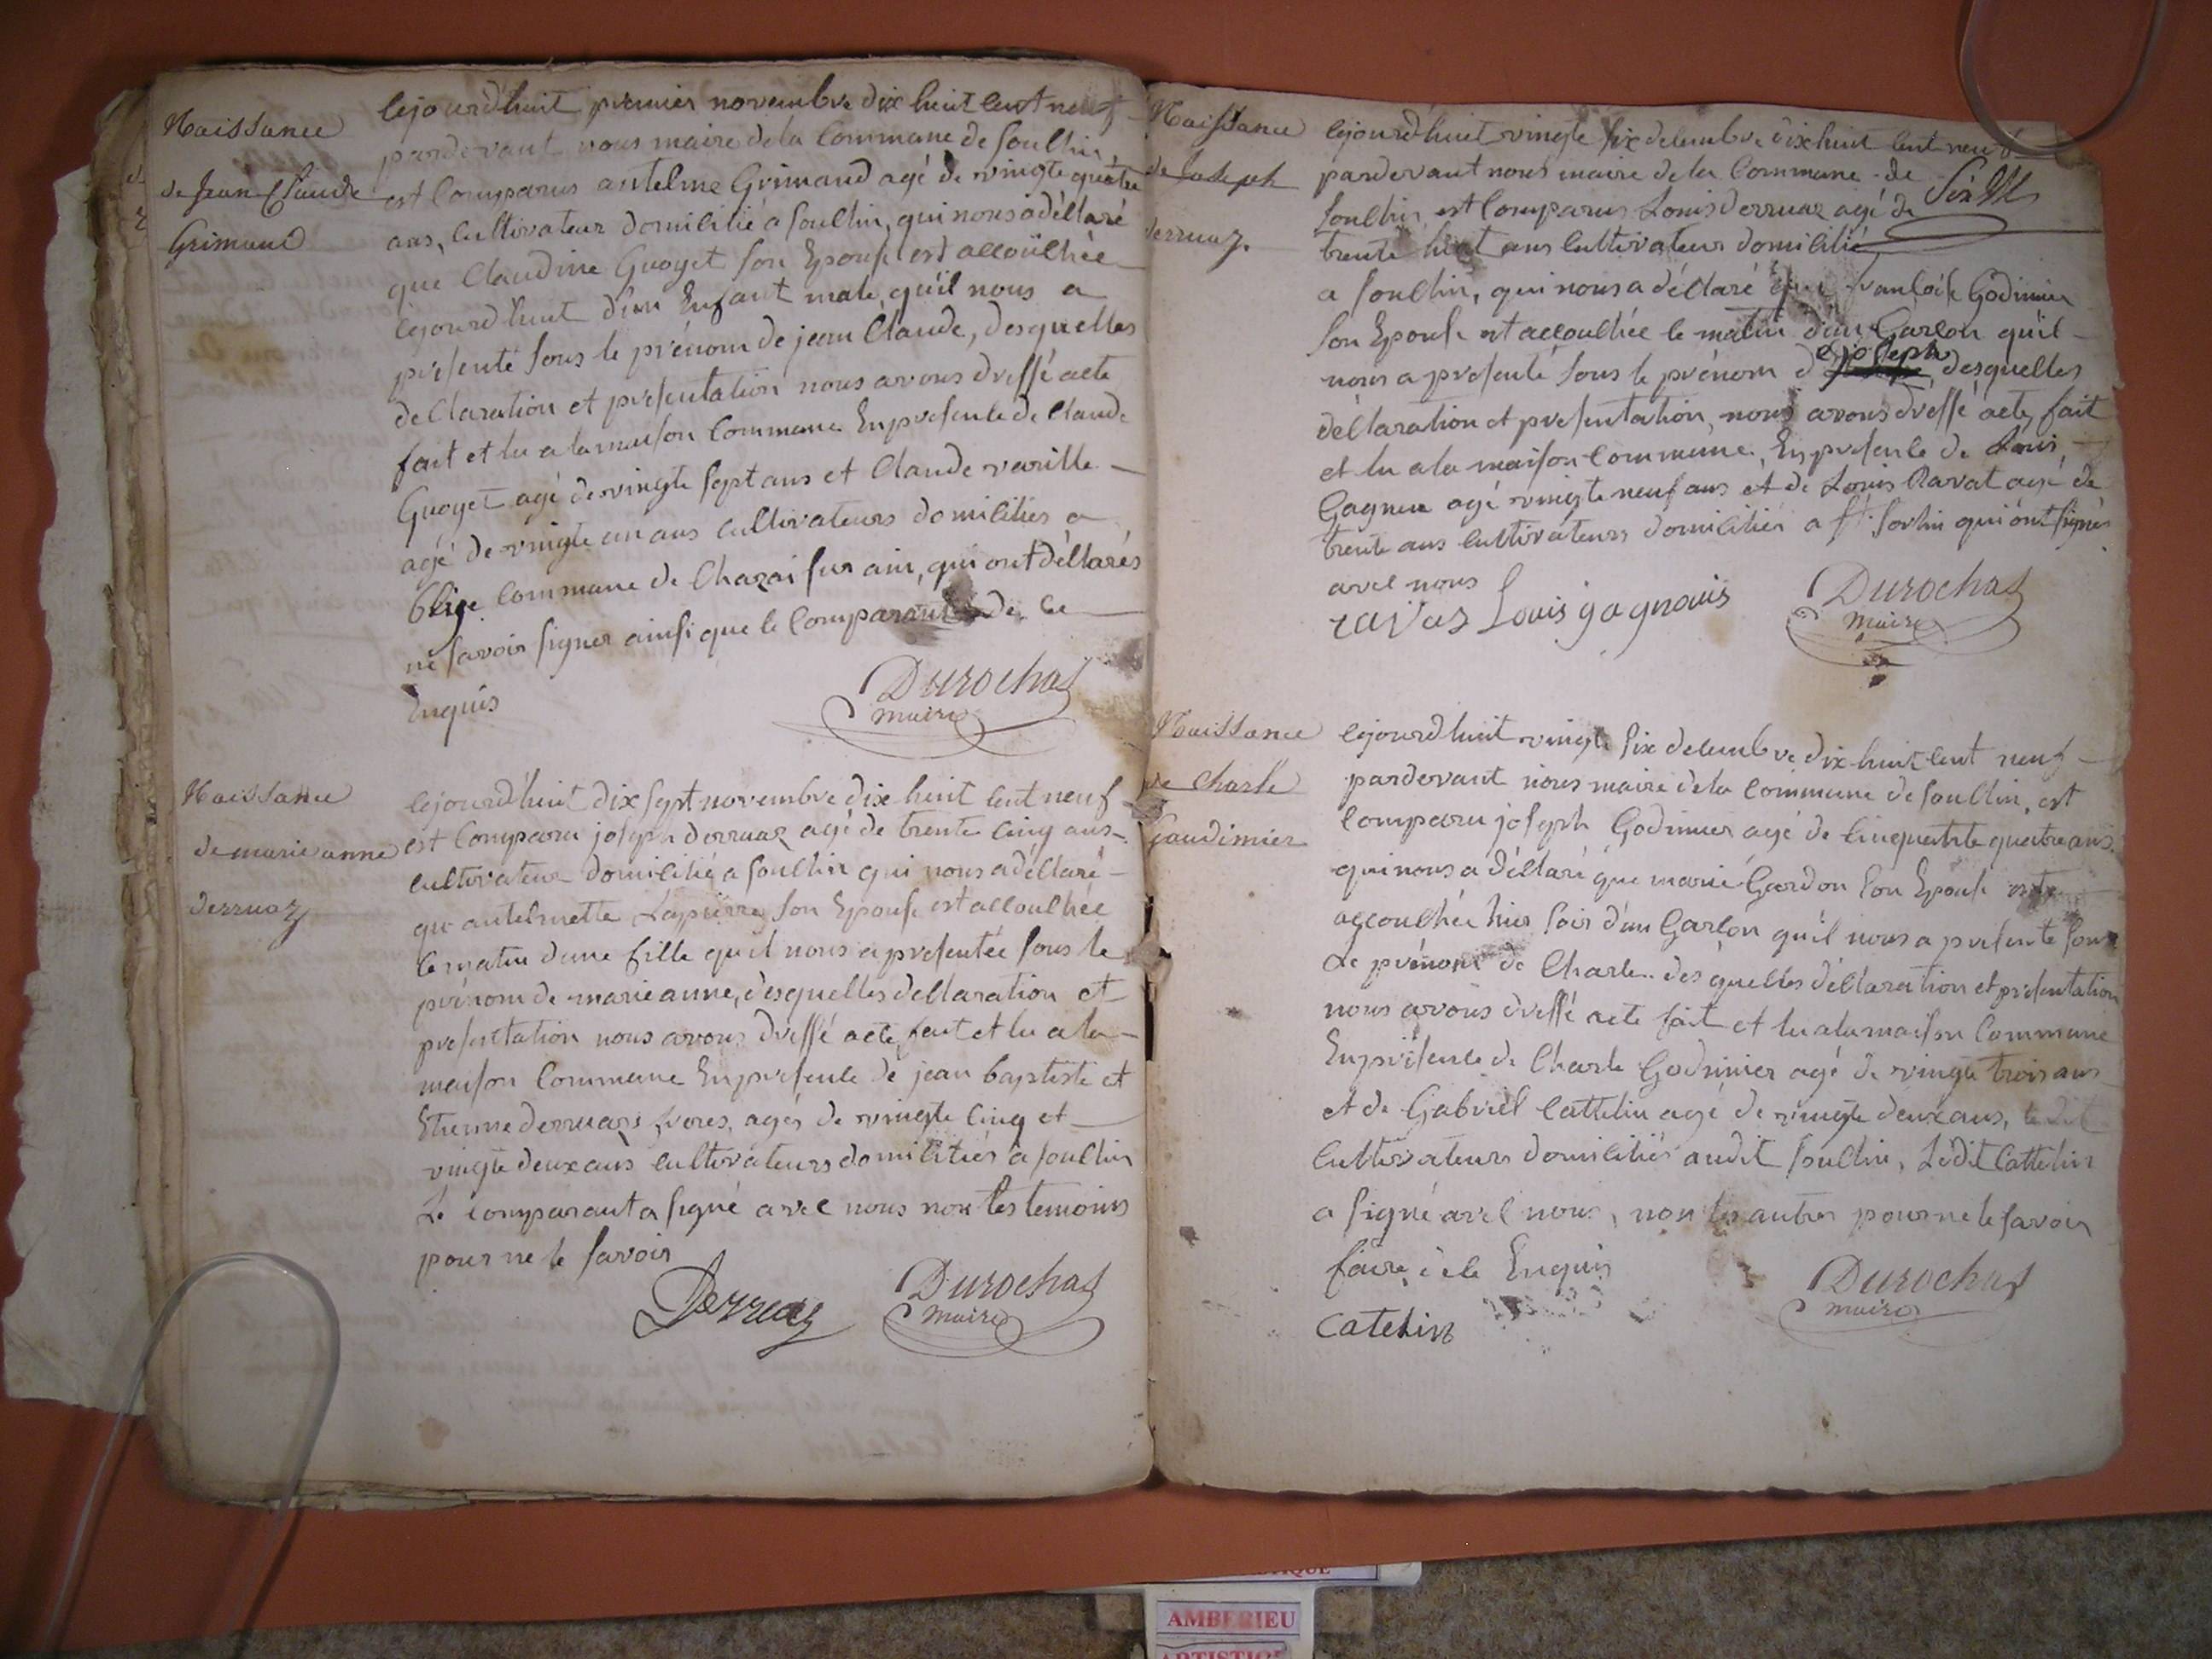 Naissance
de Jean Claude
Grimaud
Cejourd'huit premier novembre dix huit cent neuf
pardevant nous maire de la Commune de Souclin
est Comparus antelme Grimaud agé de vingte quatre
ans, Cultivateur domicilié a Souclin, qui nous a déclaré
que Claudine Guoyet son Epouse est accouchée
Cejourd'huit d'un Enfant male, qu'il nous a
presenté sous le prénom de jean Claude, desquelles
declaration et presentation nous avons dressé acte
fait et lu a la maison Commune En presence de Claude
Guoyet agé de vingte sept ans et Claude varille
agé de vingte un ans cultivateurs domiciliés a
Blige Commune de Chazai sur ain, qui ont déclarés
ne savoir signer ainsi que le Comparant de ce
Enquis
Durochat
maire
Naissance
de marie anne
derruaz
Cejourd'huit dix sept novembre dix huit cent neuf
est Comparu joseph derruaz agé de trente cinq ans
cultivateur domicilié a Souclin qui nous a déclaré
que antelmette Lapierre son Epouse est accouchée
ce matin d'une fille qu'il nous a presentée sous le
prénom de marie anne, desquelles declaration et
presentation nous avons dressé acte, fait et lu a la
maison Commune En presence de jean baptiste et
Etienne derruazs freres, agés de vingte cinq et
vingte deux ans cultivateurs domiciliés a Souclin
Le comparant a signé avec nous non les temoins
pour ne le savoir
Derruaz
Durochat
maire
Naissance
de Joseph
derruaz.
Cejourd'huit vingte six decembre dix huit cent neuf
pardevant nous maire de la Commune de
Souclin est Comparus Louis derruaz agé de
trente huit ans cultivateur domicilié
a Souclin, qui nous a déclaré que francoise Godimier
son Epouse est accouchée ce matin d'un Garcon qu'il
nous a presenté sous le prénom d
e joseph
desquelles
déclaration et presentation, nous avons dressé acte, fait
et lu a la maison Commune, En presence de Louis
Gagneux agé vingte neuf ans et de Louis Ravat agé de
trente ans cultivateurs domiciliés a St. Sorlin qui ont signés
avec nous
ravaz Louis gagnouis
Durochat
maire
Naissance
de Charle
Gaudimier
Cejourd'huit vingte six decembre dix huit cent neuf
pardevant nous maire de la Commune de Souclin, est
Comparu joseph Godimier agé de cinquante quatre ans
qui nous a déclaré que marie Gardon son Epouse est
accouchée hier soir d'un Garcon qu'il nous a presenté sous
Le prénom de Charle. des quelles déclaration et presentation
nous avons dressé acte fait et lu a la maison Commune
En présence de Charle Godimier agé de vingte trois ans
et de Gabriel Cattelin agé de vingte deux ans,
cultivateurs domiciliés audit Souclin, Ledit Cattelin
a signé avec nous, non les autres pour ne le savoir
faire, de ce Enquis
Catelin
Durochat
maire
AMBERIEU
ARTISTIQUE